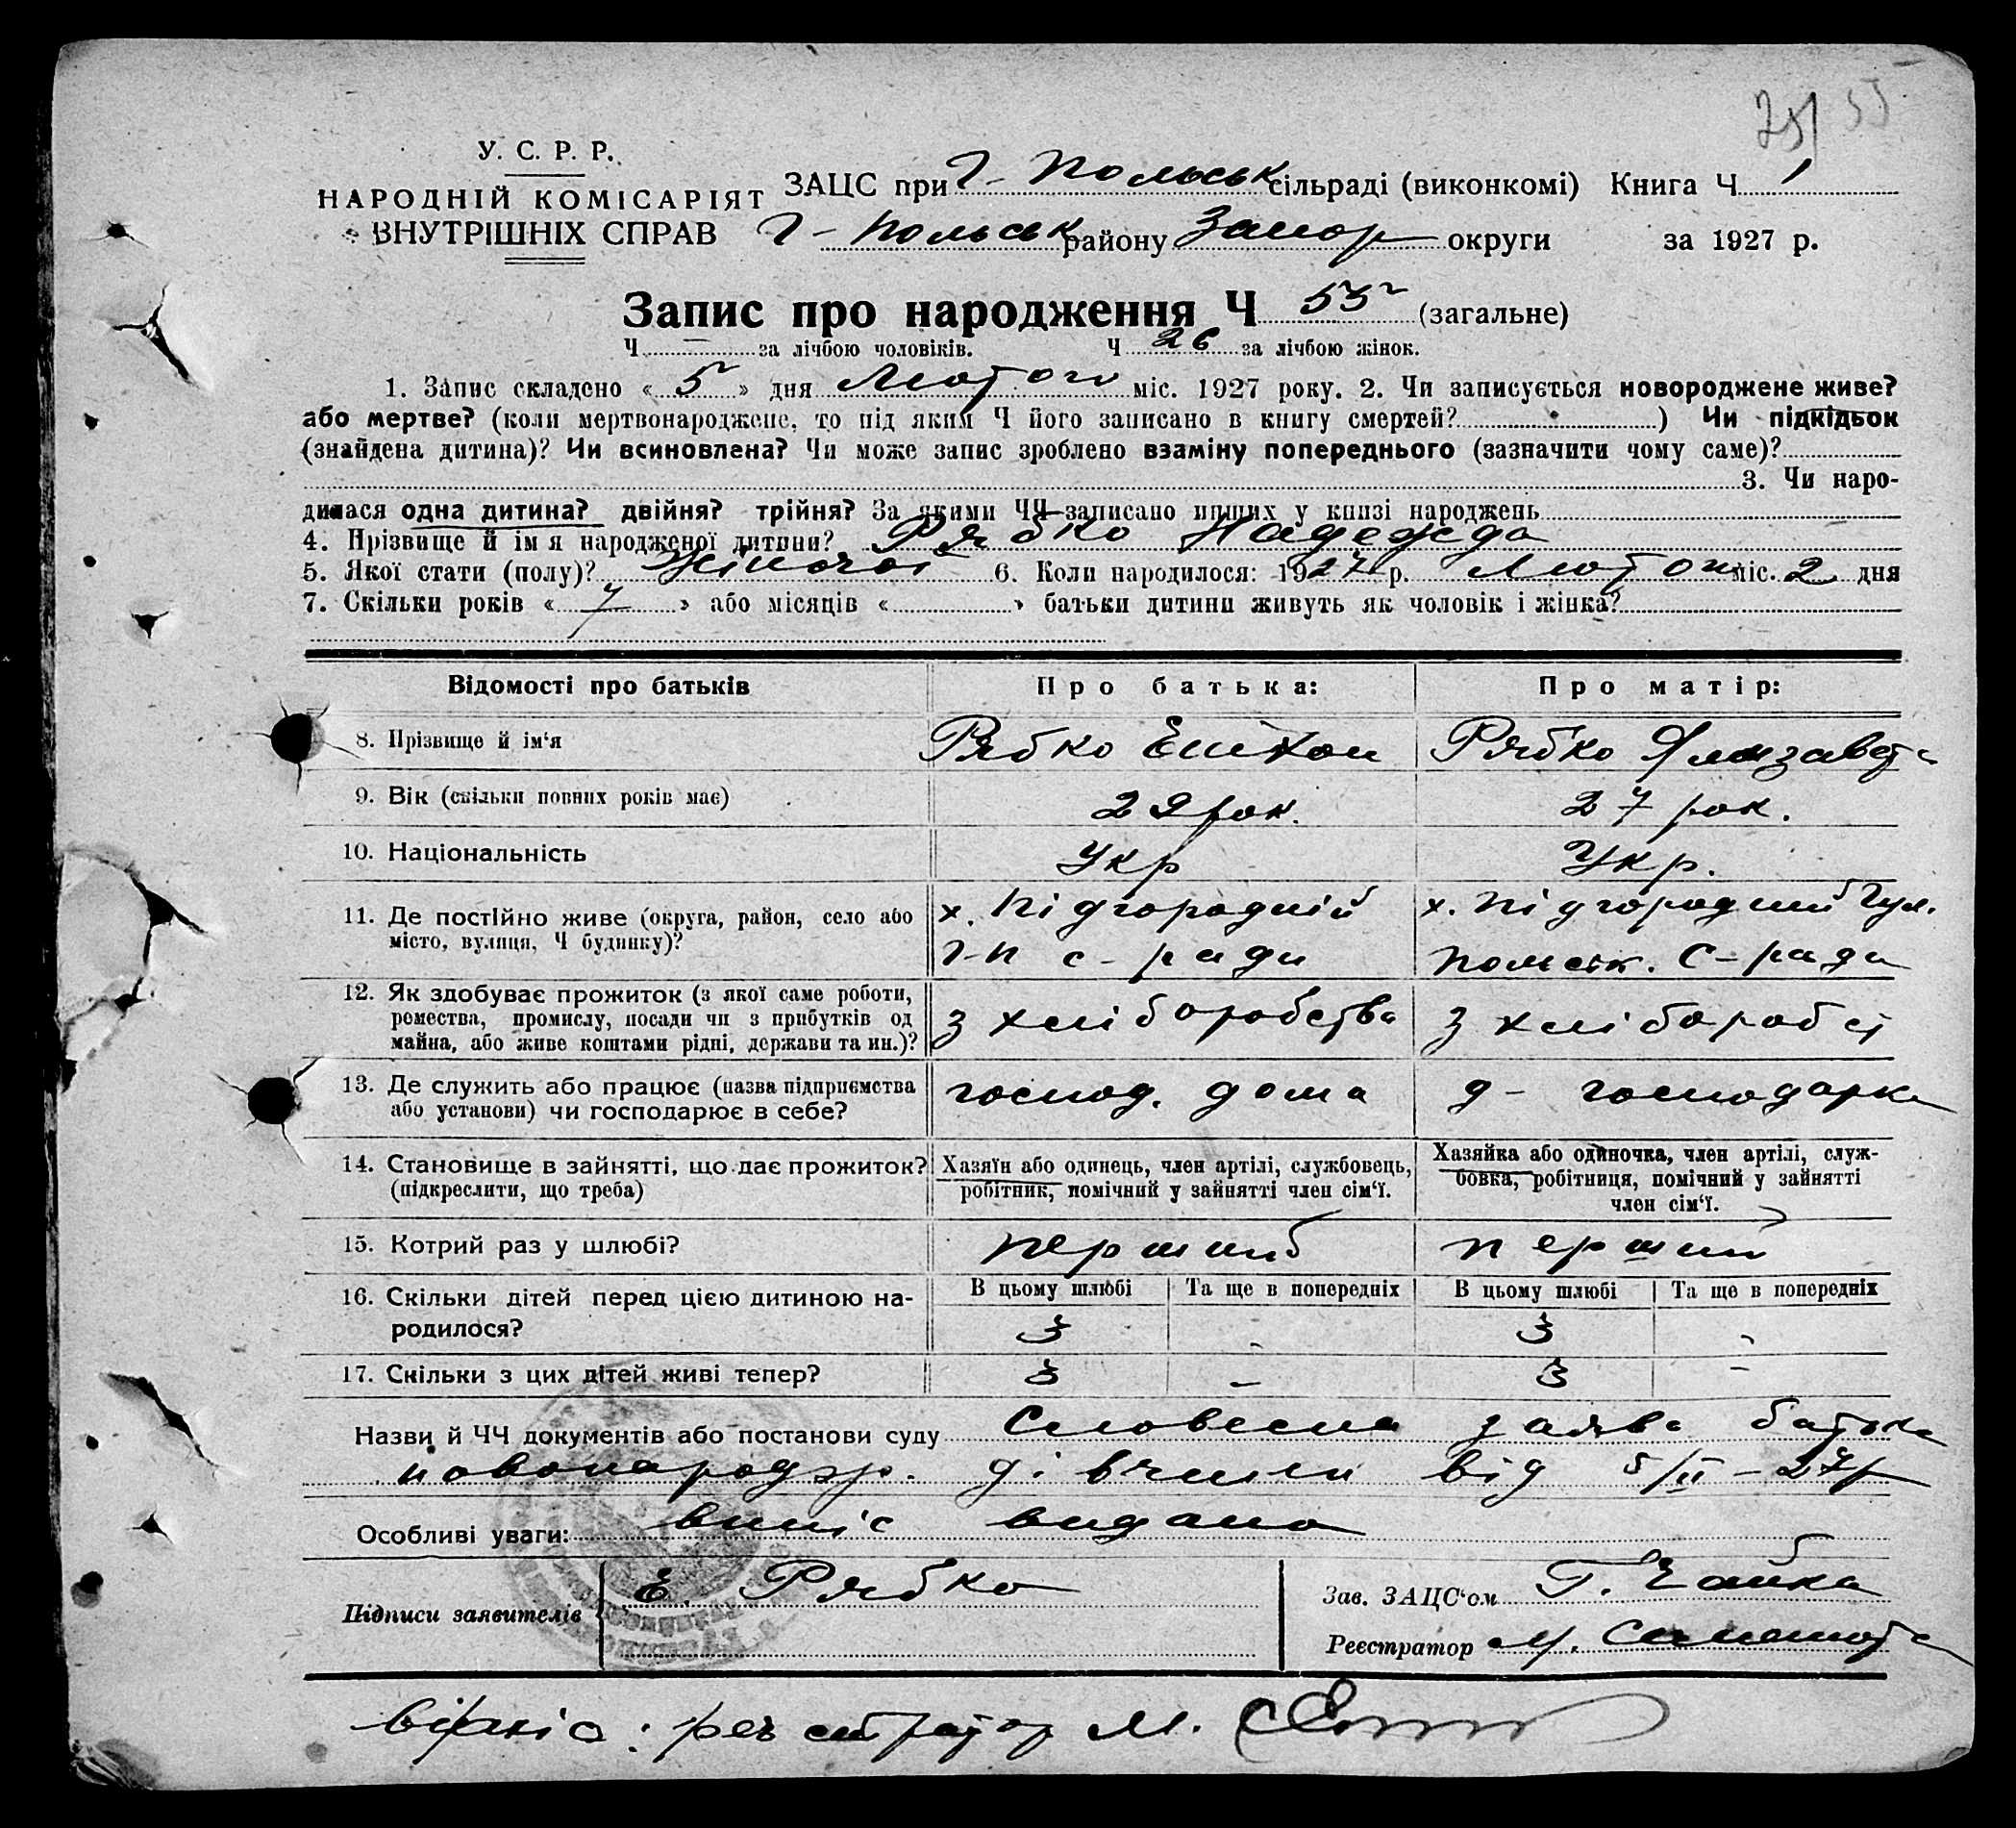 75 55
У. С. Р. Р.
НАРОДНІЙ КОМІСАРІЯТ
ВНУТРІШНІХ СПРАВ
ЗАЦС при Г-Польськ сільраді (виконкомі) Книга Ч 1
Г-Польськ району Запор округи за 1927 р.
Запис про народження Ч 55 (загальне)
Ч — за лічбою чоловіків. Ч 26 за лічбою жінок.
1. Запис складено « 5 » дня Лютого міс. 1927 року. 2. Чи записується новороджене живе?
або мертве? (коли мертвонароджене, то під яким Ч його записано в книгу смертей? ) Чи підкідьок
(знайдена дитина)? Чи всиновлена? Чи може запис зроблено взаміну попереднього (зазначити чому саме)?
3. Чи наро-
дилася одна дитина? двійня? трійня? За якими ЧЧ записано инших у книзі народжень
4. Прізвище й ім я народженої дитини? Рябко Надежда
5. Якої стати (полу)? Жіночої 6. Коли народилося: 1927 р. Лютого міс. 2 дня
7. Скільки років « 7 » або місяців « » батьки дитини живуть як чоловік і жінка?
Відомості про батьків Про батька: Про матір:
8. Прізвище й ім‘я Рябко Рябко
9. Вік (скільки повних років має) 29 рок. 27 рок.
10. Національність Укр Укр.
11. Де постійно живе (округа, район, село або х. Підгородній х. Підгородний Гул.
місто, вулиця, Ч будинку)? Г-П с-ради Польськ. С-ради
12. Як здобуває прожиток (з якої саме роботи,
ремества, промислу, посади чи з прибутків од з хліборобства з хліборобст
майна, або живе коштами рідні, держави та ин.)?
13. Де служить або працює (назва підприємства господ. дома д- господарка
або установи) чи господарює в себе?
14. Становище в зайнятті, що дає прожиток? Хазяїн або одинець, член артілі, службовець, Хазяйка або одиночка, член артілі, служ-
(підкреслити, що треба) робітник, помічний у зайнятті член сім‘ї. бовка, робітниця, помічний у зайнятті
член сім‘ї.
15. Котрий раз у шлюбі? перший перший
16. Скільки дітей перед цією дитиною на- В цьому шлюбі Та ще в попередніх В цьому шлюбі Та ще в попередніх
родилося? 3 - 3 -
17. Скільки з цих дітей живі тепер? 3 - 3 -
Назви й ЧЧ документів або постанови суду Словесна заява батька
дівчини від 5/II-27р
Особливі уваги: випіс видано
Підписи заявителів Е. Рябко
Зав. ЗАЦС‘ом Г. Чайка
Реєстратор М.
Вірно: реєстратор М.